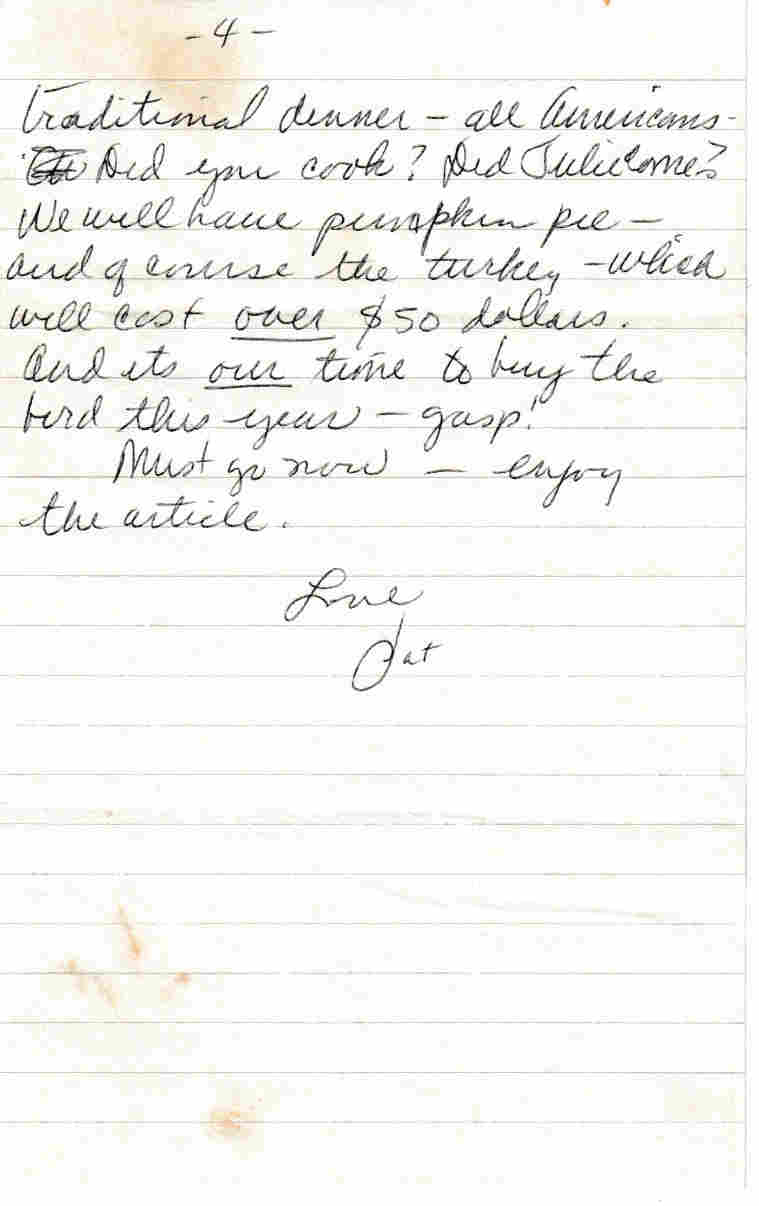 -4-
traditional dinner - all Americans -
Did you cook? Did Julie come?
We will have pumpkin pie -
and of course the turkey - which
will cost over $50 dollars.
And its our time to buy the
bird this year - gasp!
Must go now - enjoy
the article.
Love
Pat